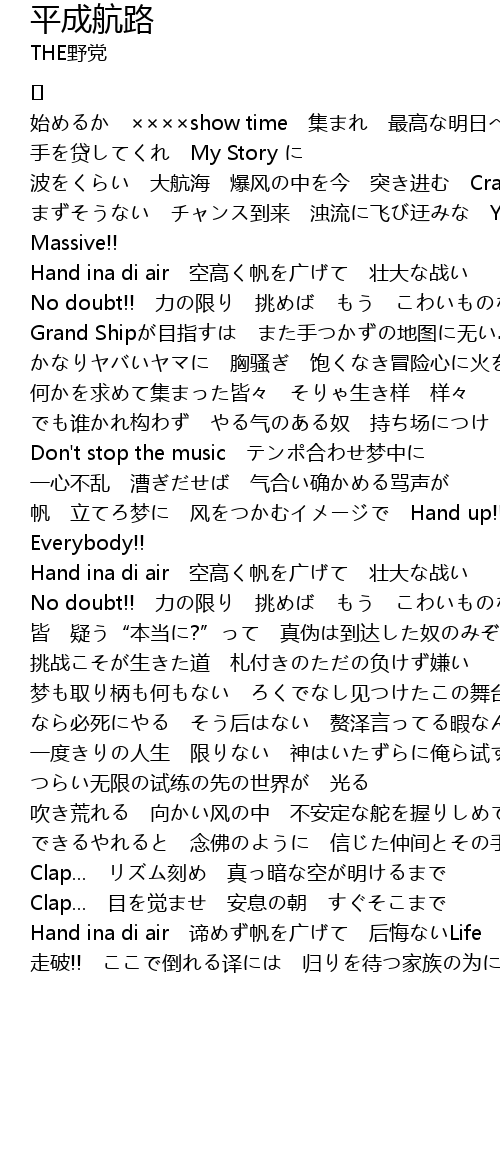 平成航路
THE野党
[]
始めるか　××××show time　集まれ　最高な明日へ
手を贷してくれ　My Story に
波をくらい　大航海　爆风の中を今　突き进む　Cra
まずそうない　チャンス到来　浊流に飞び迂みな　Y
Massive!!
Hand ina di air　空高く帆を广げて　壮大な战い
No doubt!!　力の限り　挑めば　もう　こわいものな
Grand Shipが目指すは　また手つかずの地图に无い
かなりヤバいヤマに　胸骚ぎ　饱くなき冒险心に火を
何かを求めて集まった皆々　そりゃ生き样　样々
でも谁かれ构わず　やる气のある奴　持ち场につけ
Don't stop the music　テンポ合わせ梦中に
一心不乱　漕ぎだせば　气合い确かめる骂声が
帆　立てろ梦に　风をつかむイメージで　Hand up!!
Everybody!!
Hand ina di air　空高く帆を广げて　壮大な战い
No doubt!!　力の限り　挑めば　もう　こわいものな
皆　疑う“本当に?”って　真伪は到达した奴のみぞ
挑战こそが生きた道　札付きのただの负けず嫌い
梦も取り柄も何もない　ろくでなし见つけたこの舞台
なら必死にやる　そう后はない　赘泽言ってる暇なん
一度きりの人生　限りない　神はいたずらに俺ら试す
つらい无限の试练の先の世界が　光る
吹き荒れる　向かい风の中　不安定な舵を握りしめて
できるやれると　念佛のように　信じた仲间とその手
Clap...　リズム刻め　真っ暗な空が明けるまで
Clap...　目を觉ませ　安息の朝　すぐそこまで
Hand ina di air　谛めず帆を广げて　后悔ないLife
走破!!　ここで倒れる译には　归りを待つ家族の为に